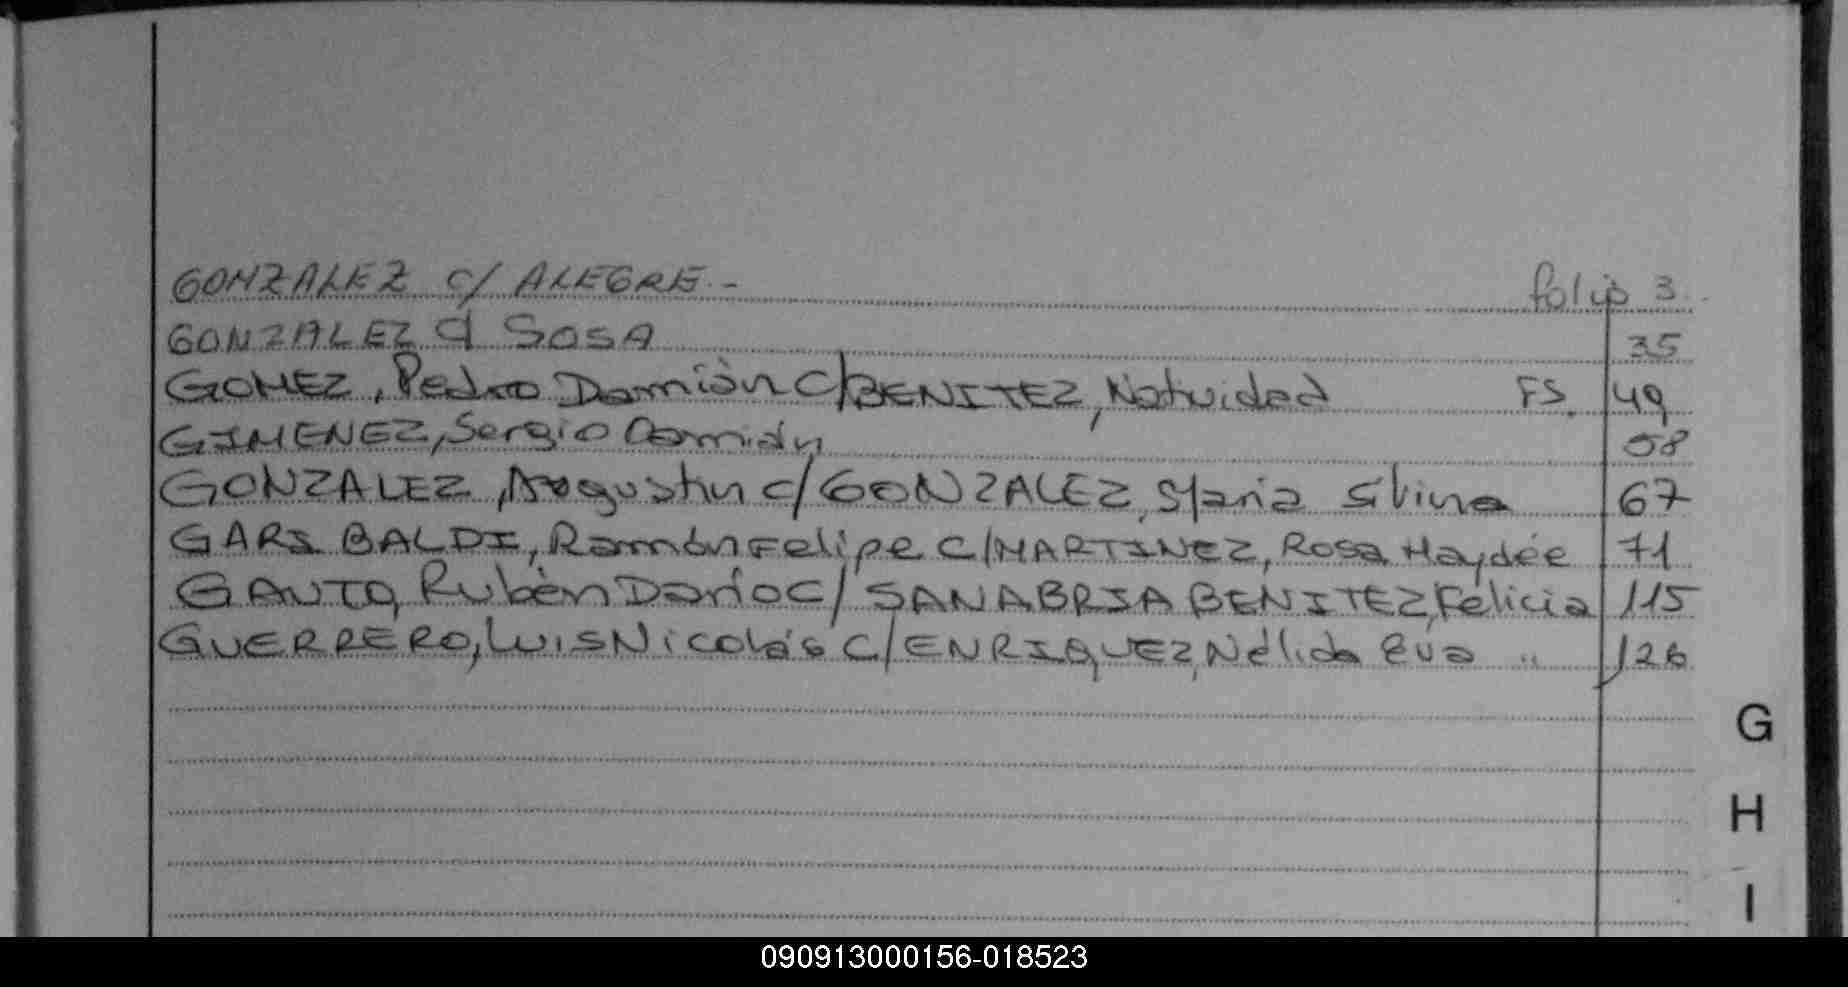 GONZALEZ c/ ALEGRE.- folio 3
GONZALEZ c/ SOSA 35
GOMEZ, Pedro Damián C/BENITEZ, Natividad FS. 49
GIMENEZ, Sergio Damián 58
GONZALEZ, Augustin c/ GONZALEZ, Maria Silvina 67
GARIBALDI, Ramón Felipe C/MARTINEZ, Rosa Haydée 71
GAUTO, Rubén Darío C/ SANABRIA BENITEZ, Felicia 115
GUERRERO, LUIS Nicolás C/ENRIQUEZ, Nélida Eva " 126
G
H
I
090913000156-018523